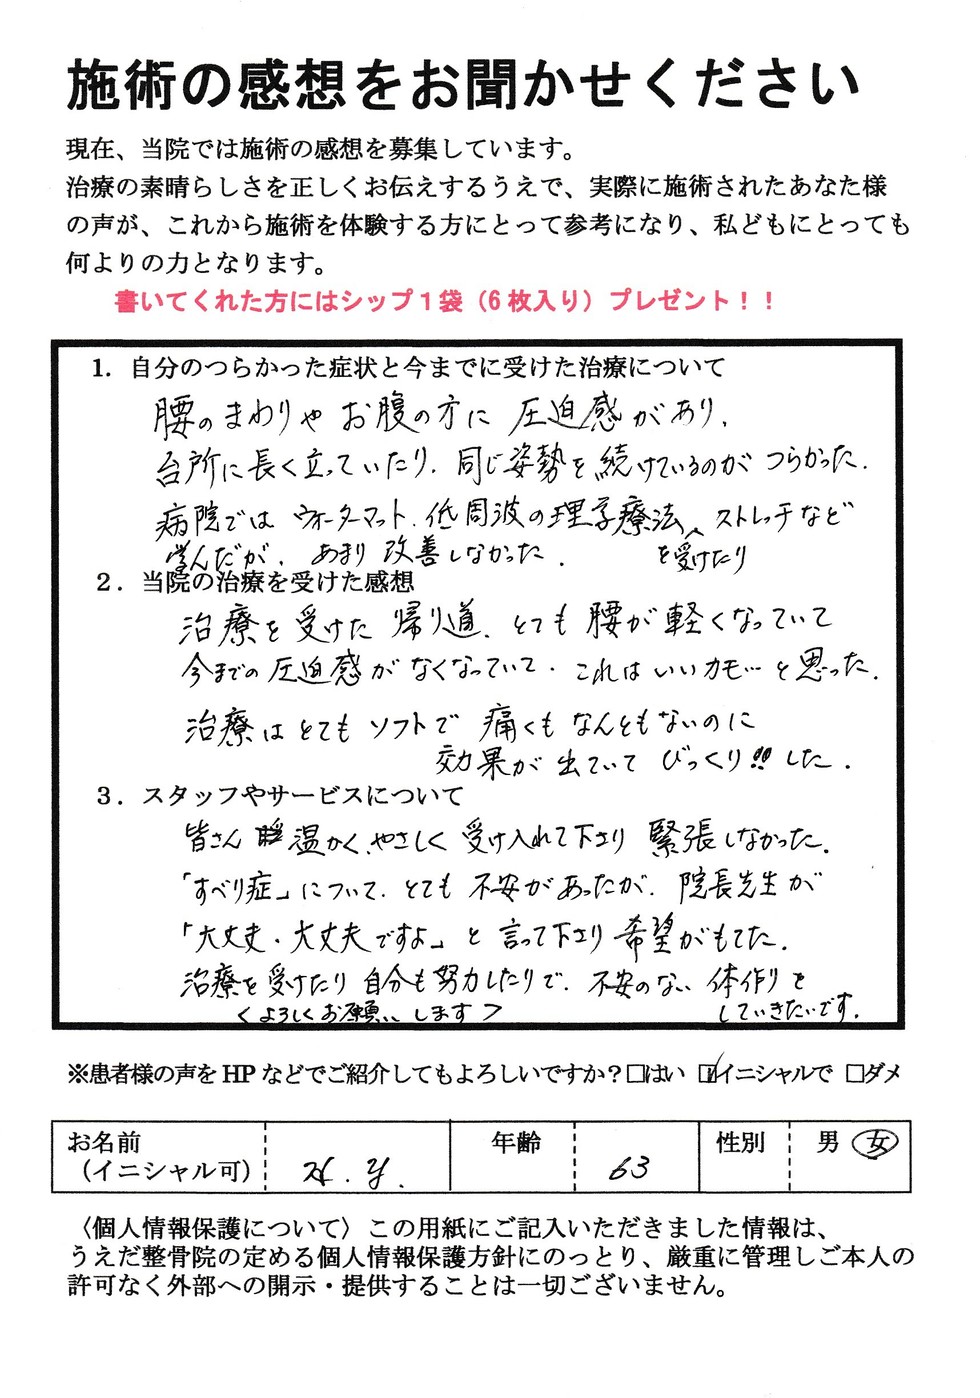 施術の感想をお聞かせください
現在、当院では施術の感想を募集しています。
治療の素晴らしさを正しくお伝えするうえで、実際に施術されたあなた様
の声が、これから施術を体験する方にとって参考になり、私どもにとっても
何よりの力となります。
書いてくれた方にはシップ１袋（6 枚入り）プレゼント！！
1．自分のつらかった症状と今までに受けた治療について
腰のまわりや お腹の方に 圧迫感があり、
台所に長く立っていたり、同じ姿勢を続けているのが つらかった．
病院では ウォーターマット、低周波の理学療法 ストレッチなど
を受けたり
学んだが、あまり改善しなかった．
２．当院の治療を受けた感想
治療を受けた 帰り道、とても 腰が軽くなっていて
今までの圧迫感がなくなっていて・これはいいカモ…と思った．
治療はとてもソフトで 痛くもなんともないのに
効果が出ていて びっくり!!した．
３．スタッフやサービスについて
皆さん 温かく、やさしく 受け入れて下さり 緊張しなかった．
「すべり症」について、とても 不安があったが、院長先生が
「大丈夫・大丈夫ですよ」と 言って下さり 希望がもてた．
治療を受けたり 自分も努力したりで、不安のない 体作りを
していきたいです．
＜よろしくお願いします＞
※患者様の声を HP などでご紹介してもよろしいですか？□はい ☑イニシャルで □ダメ
お名前
（イニシャル可）
. y.
年齢
63
性別
男 女
〈個人情報保護について〉この用紙にご記入いただきました情報は、
うえだ整骨院の定める個人情報保護方針にのっとり、厳重に管理しご本人の
許可なく外部への開示・提供することは一切ございません。